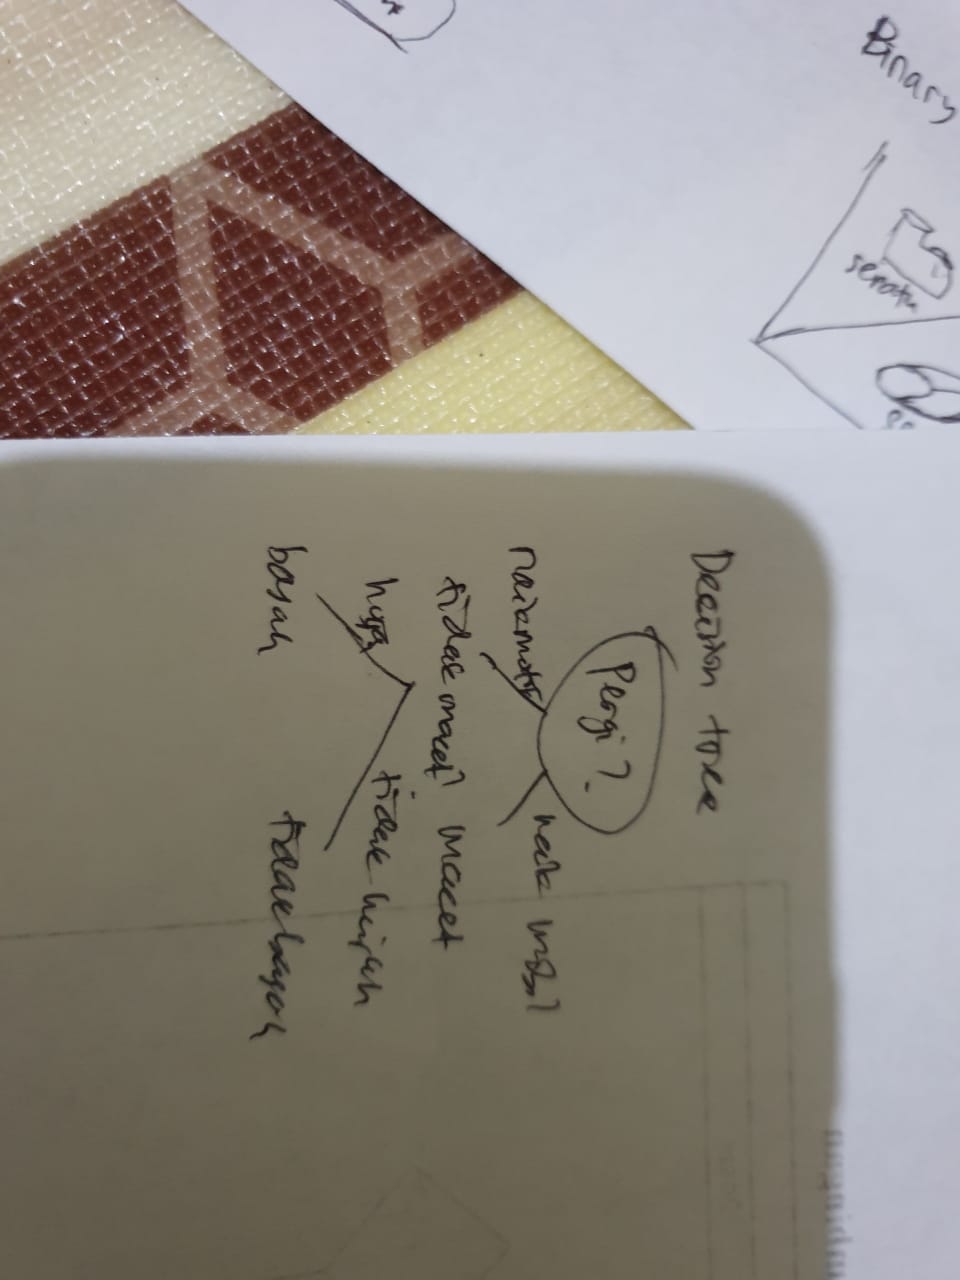 Binary
sepatu
Decision tree
Pergi?
naik motor naik mobil
tidak macet macet
hujan tidak hujan
basah tidak basah